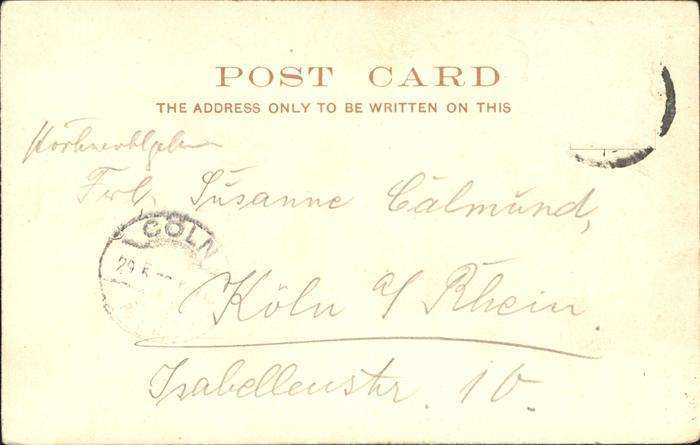 POST CARD
THE ADDRESS ONLY TO BE WRITTEN ON THIS
Frl. Susanne Calmund,
CÖLN
29.5
Köln a/ Rhein.
Isabellenstr. 10.